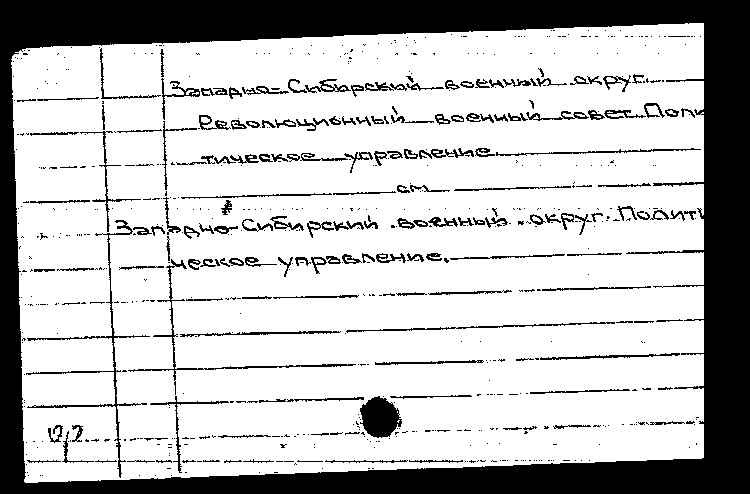 Западно-Сибирский военный округ.
Революционный военный совет. Поли
тическое управление.
см
Западно-Сибирский военный округ. Полити
ческое управление.